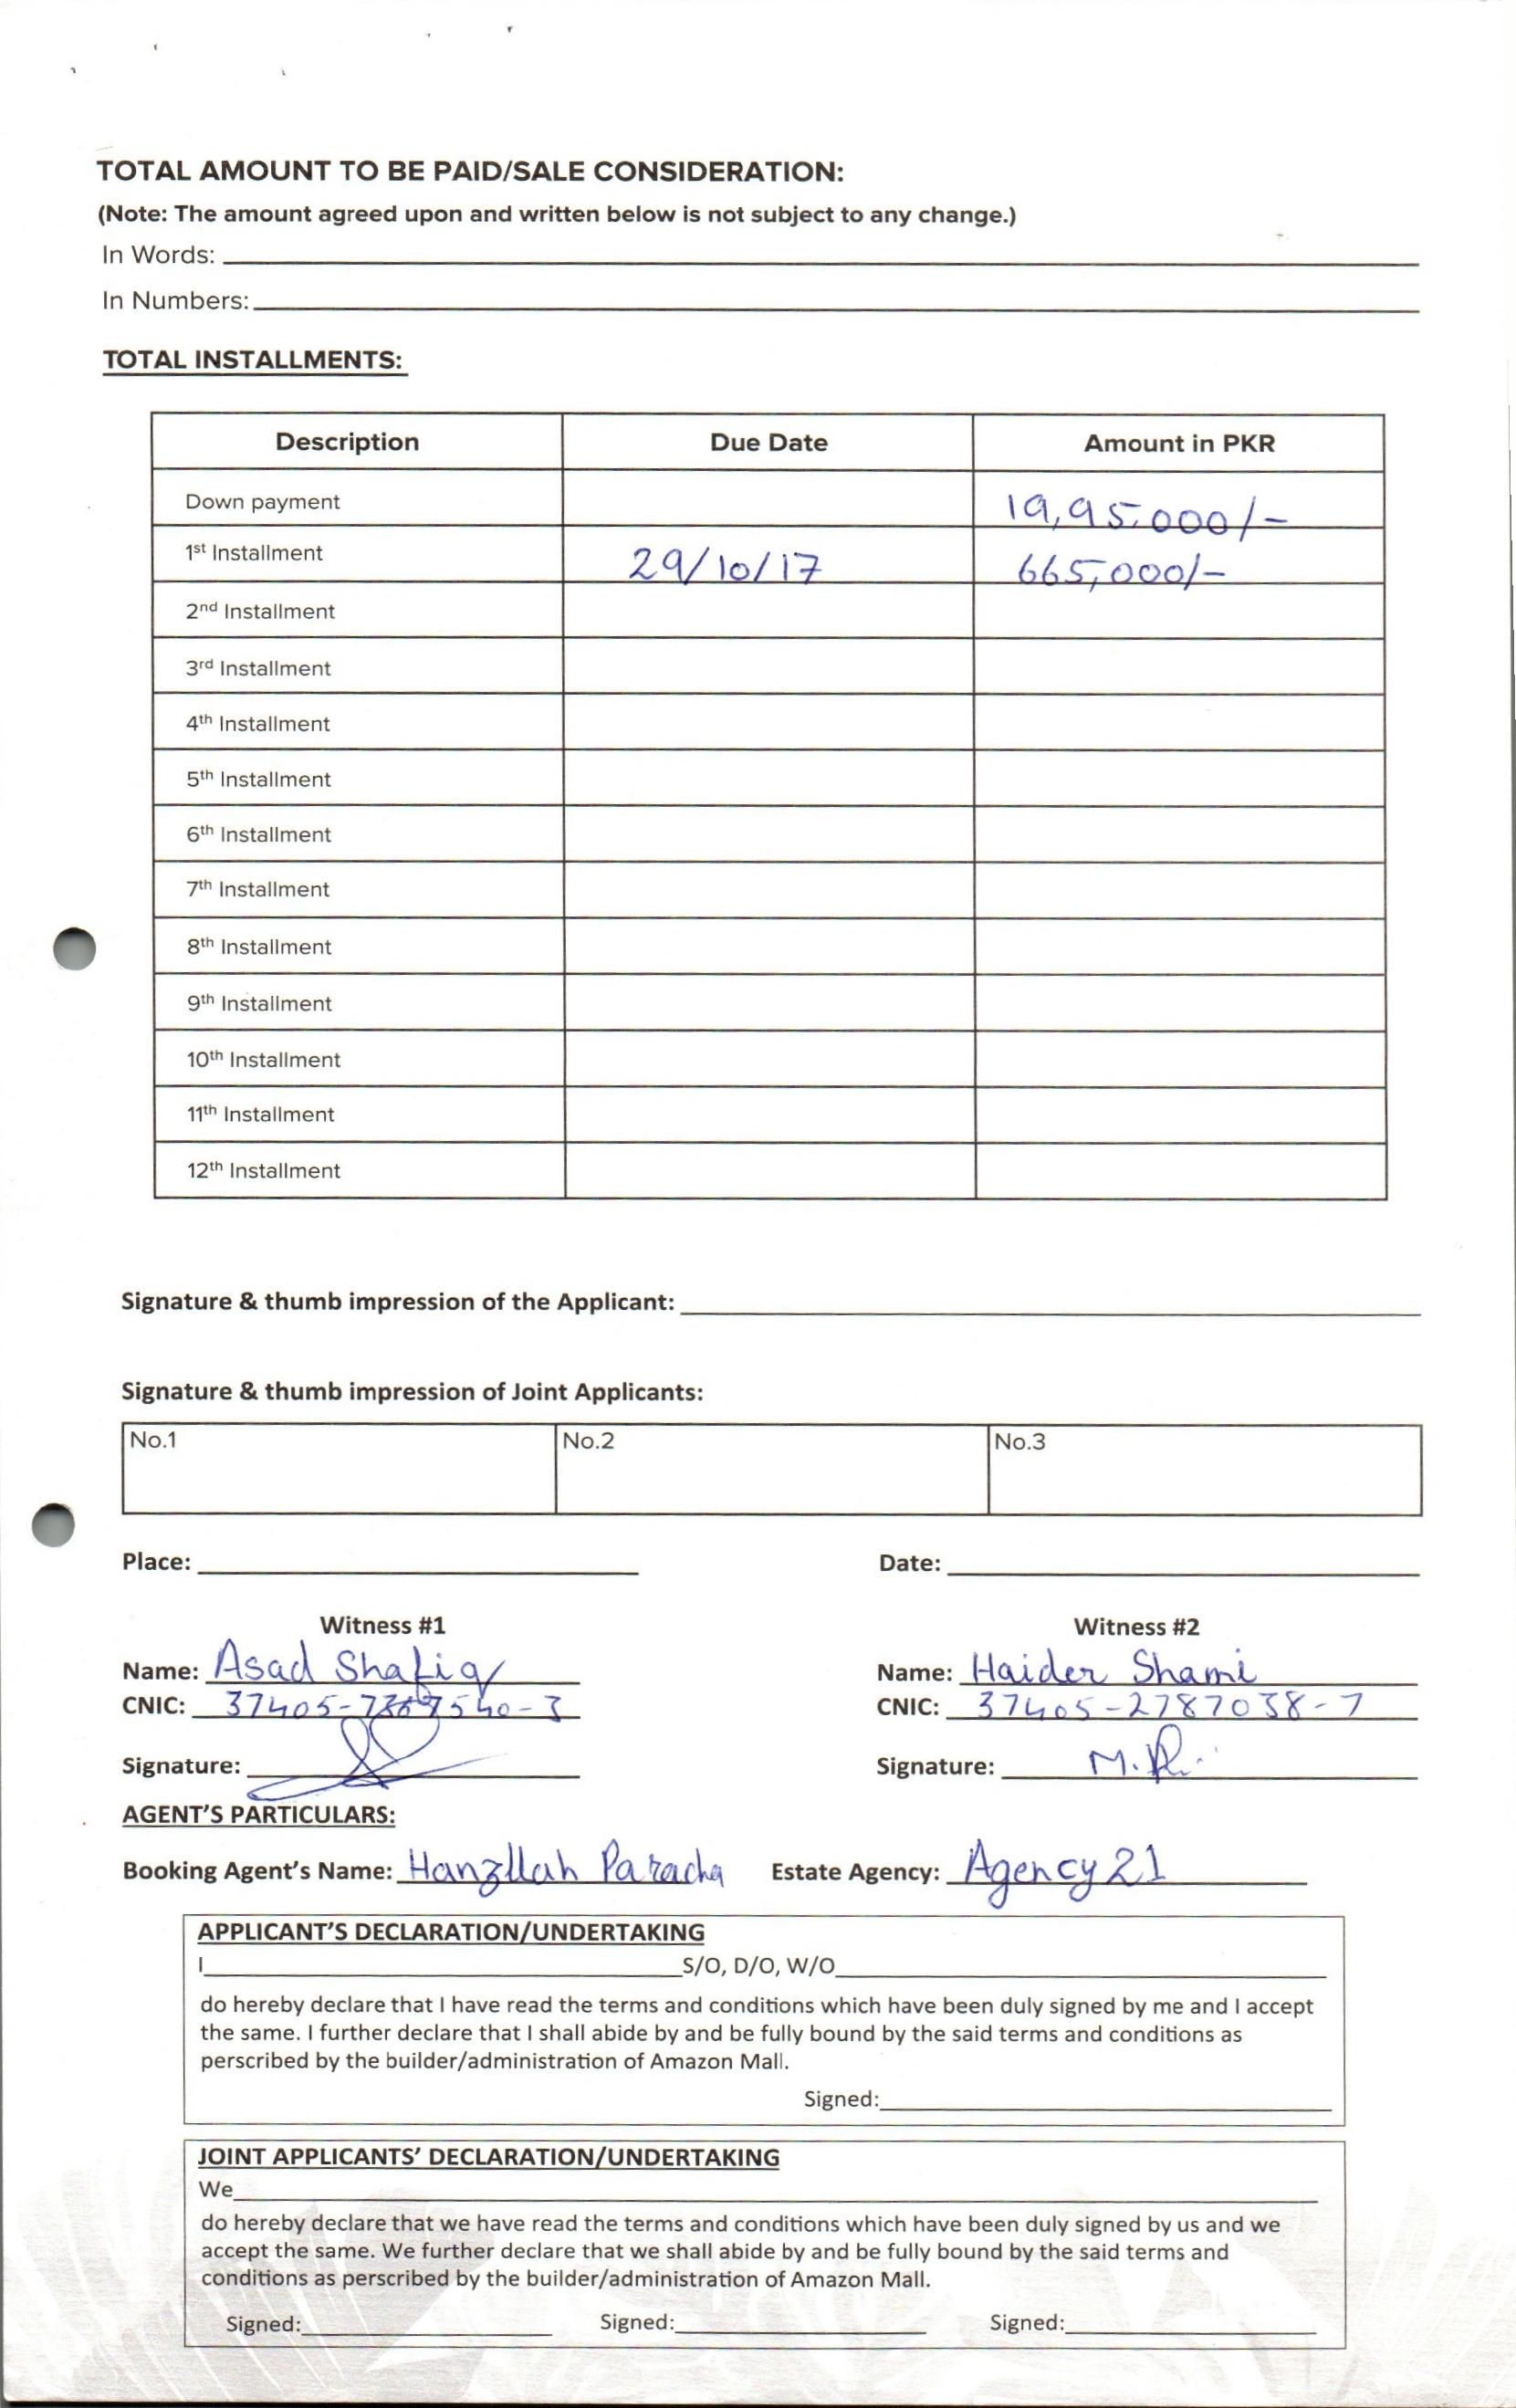 TOTAL AMOUNT TO BE PAID/SALE CONSIDERATION:
(Note: The amount agreed upon and written below is not subject to any change.)
In Words:
In Numbers:
TOTAL INSTALLMENTS:
Description Due Date Amount in PKR
Down payment 19,95,000/-
1st Installment 29/10/17 665,000/-
2nd Installment
3rd Installment
4th Installment
5th Installment
6th Installment
7th Installment
8th Installment
9th Installment
10th Installment
11th Installment
12th Installment
Signature & thumb impression of the Applicant:
Signature & thumb impression of Joint Applicants:
No.1 No.2 No.3
Place: Date:
Witness #1 Witness #2
Name: Asad Shafiq Name: Haider Shami
CNIC: CNIC: 37405-2787038-7
Signature: Signature:
AGENT'S PARTICULARS:
Booking Agent's Name: Hanzllah Paracha Estate Agency: Agency 21
APPLICANT'S DECLARATION/UNDERTAKING
I S/O, D/O, W/O
do hereby declare that I have read the terms and conditions which have been duly signed by me and I accept
the same. I further declare that I shall abide by and be fully bound by the said terms and conditions as
perscribed by the builder/administration of Amazon Mall.
Signed:
JOINT APPLICANTS' DECLARATION/UNDERTAKING
We
do hereby declare that we have read the terms and conditions which have been duly signed by us and we
accept the same. We further declare that we shall abide by and be fully bound by the said terms and
conditions as perscribed by the builder/administration of Amazon Mall.
Signed: Signed: Signed: